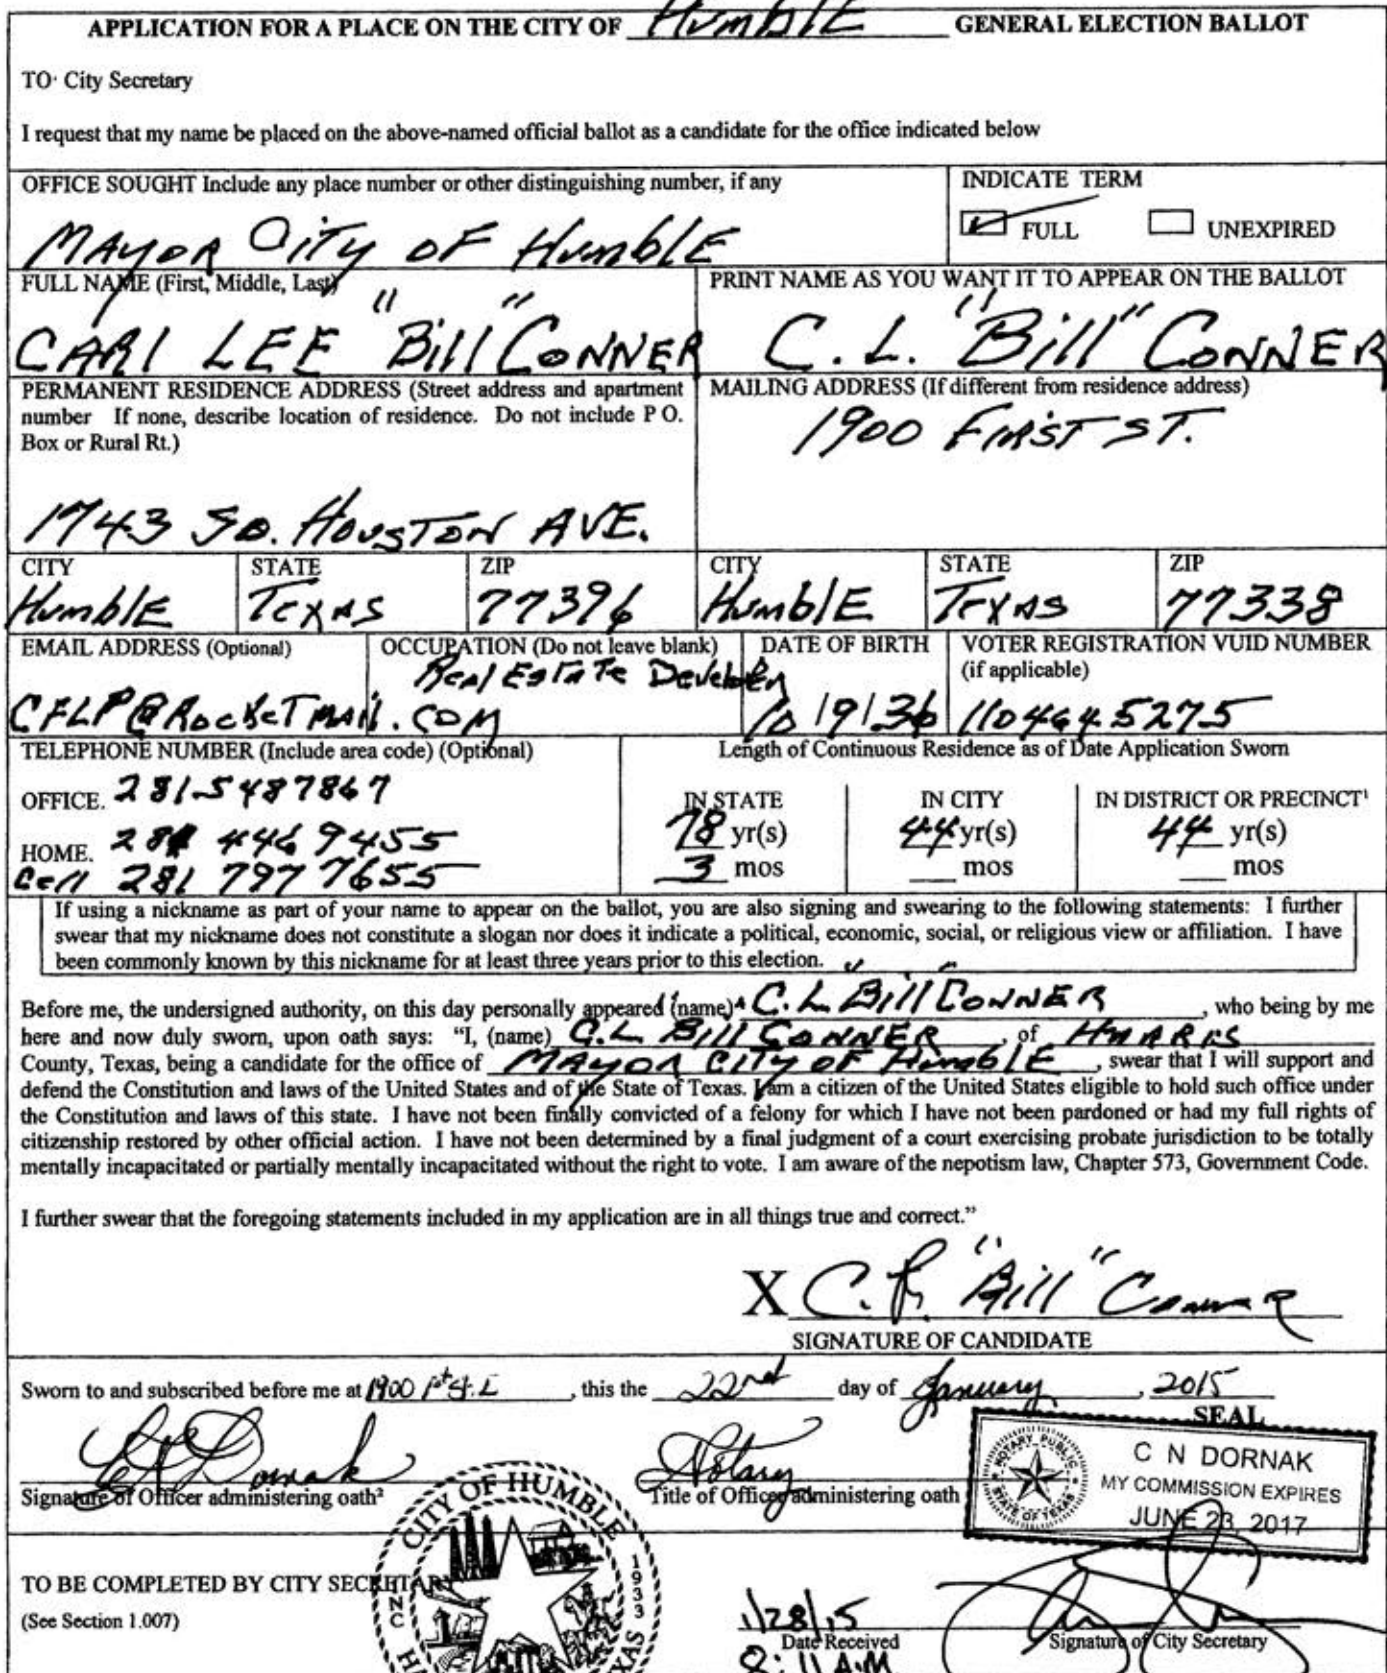 APPLICATION FOR A PLACE ON THE CITY OF HumblE GENERAL ELECTION BALLOT
TO: City Secretary
I request that my name be placed on the above-named official ballot as a candidate for the office indicated below
OFFICE SOUGHT Include any place number or other distinguishing number, if any
INDICATE TERM
MAYOR CiTy OF HumblE
FULL UNEXPIRED
FULL NAME (First, Middle, Last)
PRINT NAME AS YOU WANT IT TO APPEAR ON THE BALLOT
CARl LEE "Bill" CONNER
C. L. "Bill" CONNER
PERMANENT RESIDENCE ADDRESS (Street address and apartment number If none, describe location of residence. Do not include P O. Box or Rural Rt.)
MAILING ADDRESS (If different from residence address)
1743 SO. HOUSTON AVE.
1900 FIRST ST.
CITY STATE ZIP CITY STATE ZIP
HumblE TEXAS 77396 HumblE TEXAS 77338
EMAIL ADDRESS (Optional) OCCUPATION (Do not leave blank) DATE OF BIRTH VOTER REGISTRATION VUID NUMBER
(if applicable)
CFLP@ROCKETMAil.COM Real EsTaTe Developer 10 19 36 1104645275
TELEPHONE NUMBER (Include area code) (Optional)
Length of Continuous Residence as of Date Application Sworn
OFFICE. 281-5487867
HOME. 281 446 9455
Cell 281 797 7655
IN STATE IN CITY IN DISTRICT OR PRECINCT¹
78 yr(s) 44 yr(s) 44 yr(s)
3 mos mos mos
If using a nickname as part of your name to appear on the ballot, you are also signing and swearing to the following statements: I further
swear that my nickname does not constitute a slogan nor does it indicate a political, economic, social, or religious view or affiliation. I have
been commonly known by this nickname for at least three years prior to this election.
Before me, the undersigned authority, on this day personally appeared (name) C. L. "Bill" CONNER, who being by me
here and now duly sworn, upon oath says: "I, (name) C. L. Bill CONNER of HARRIS
County, Texas, being a candidate for the office of MAYOR CITY OF HumblE, swear that I will support and
defend the Constitution and laws of the United States and of the State of Texas. I am a citizen of the United States eligible to hold such office under
the Constitution and laws of this state. I have not been finally convicted of a felony for which I have not been pardoned or had my full rights of
citizenship restored by other official action. I have not been determined by a final judgment of a court exercising probate jurisdiction to be totally
mentally incapacitated or partially mentally incapacitated without the right to vote. I am aware of the nepotism law, Chapter 573, Government Code.
I further swear that the foregoing statements included in my application are in all things true and correct."
X C. L. "Bill" Conner
SIGNATURE OF CANDIDATE
Sworn to and subscribed before me at 1900 1st St. E, this the 22nd day of January, 2015
SEAL
CN Dornak
Notary
Signature of Officer administering oath²
Title of Officer administering oath
NOTARY PUBLIC STATE OF TEXAS
C N DORNAK
MY COMMISSION EXPIRES
JUNE 23, 2017
CITY OF HUMBLE
1933
INC
TEXAS
TO BE COMPLETED BY CITY SECRETARY
(See Section 1.007)
1/28/15
Date Received
8:11 A.M
Signature of City Secretary